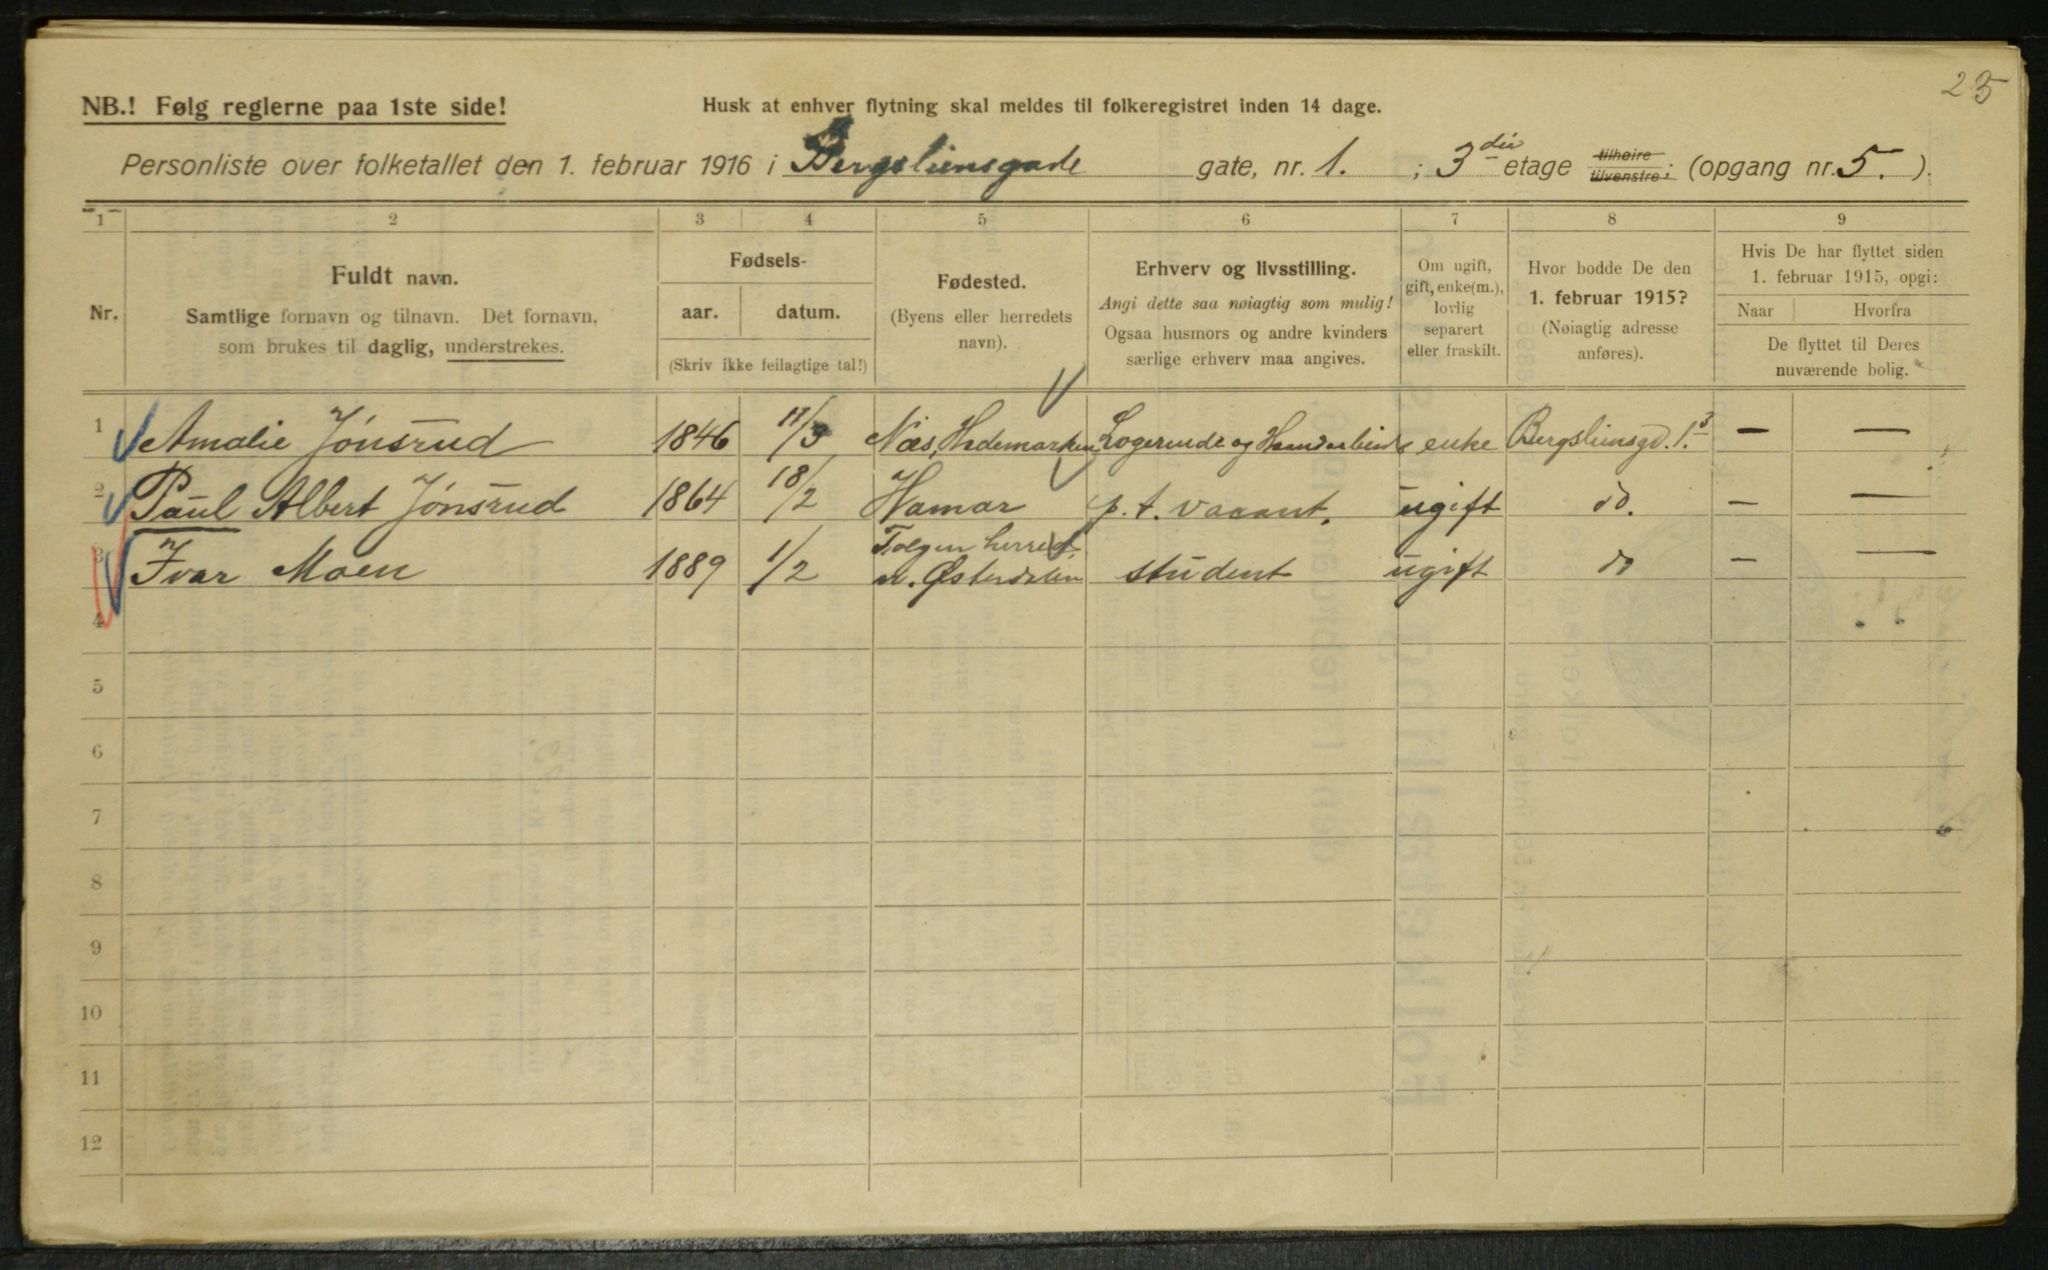 25
NB.! Følg reglerne paa 1ste side!
Husk at enhver flytning skal meldes til folkeregistret inden 14 dage.
Personliste over folketallet den 1. februar 1916 i Bergsliensgade gate, nr. 1. ; 3die etage tilhøire tilvenstre; (opgang nr. 5. ).
1 2 3 4 5 6 7 8 9
Nr.
Fuldt navn.
Samtlige fornavn og tilnavn. Det fornavn,
som brukes til daglig, understrekes.
Fødsels-
aar. datum.
(Skriv ikke feilagtige tal!)
Fødested.
(Byens eller herredets
navn).
Erhverv og livsstilling.
Angi dette saa nøiagtig som mulig!
Ogsaa husmors og andre kvinders
særlige erhverv maa angives.
Om ugift,
gift, enke(m.),
lovlig
separert
eller fraskilt.
Hvor bodde De den
1. februar 1915?
(Nøiagtig adresse
anføres).
Hvis De har flyttet siden
1. februar 1915, opgi:
Naar Hvorfra
De flyttet til Deres
nuværende bolig.
1 Amalie Jónsrud 1846 11/3 Næs, Hedemarken Logerende og Haandarbeide enke Bergsliensgd. 1.3 — —
2 Paul Albert Jónsrud 1864 18/2 Hamar p. t. vacant. ugift do. — —
3 Ivar Moen 1889 1/2 Tolgen herred, n. Østerdalen student ugift do — —
4
5
6
7
8
9
10
11
12